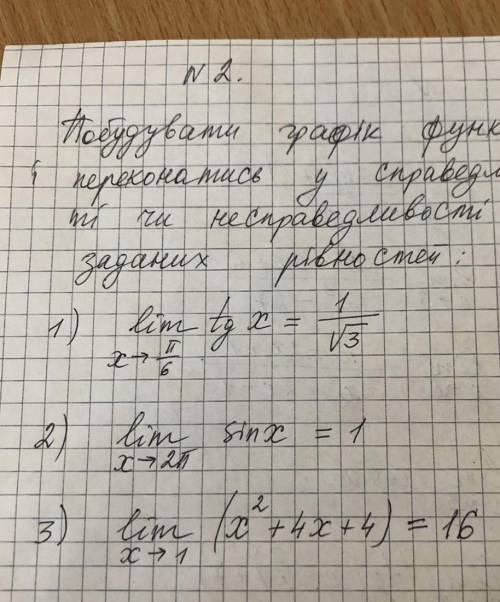 N 2.
Побудувати графік функ
і переконатись у справедл
ті чи несправедливості
заданих рівностей:
1) lim tg x = 1/√3
x→π/6
2) lim sin x = 1
x→2π
3) lim (x² + 4x + 4) = 16
x→1